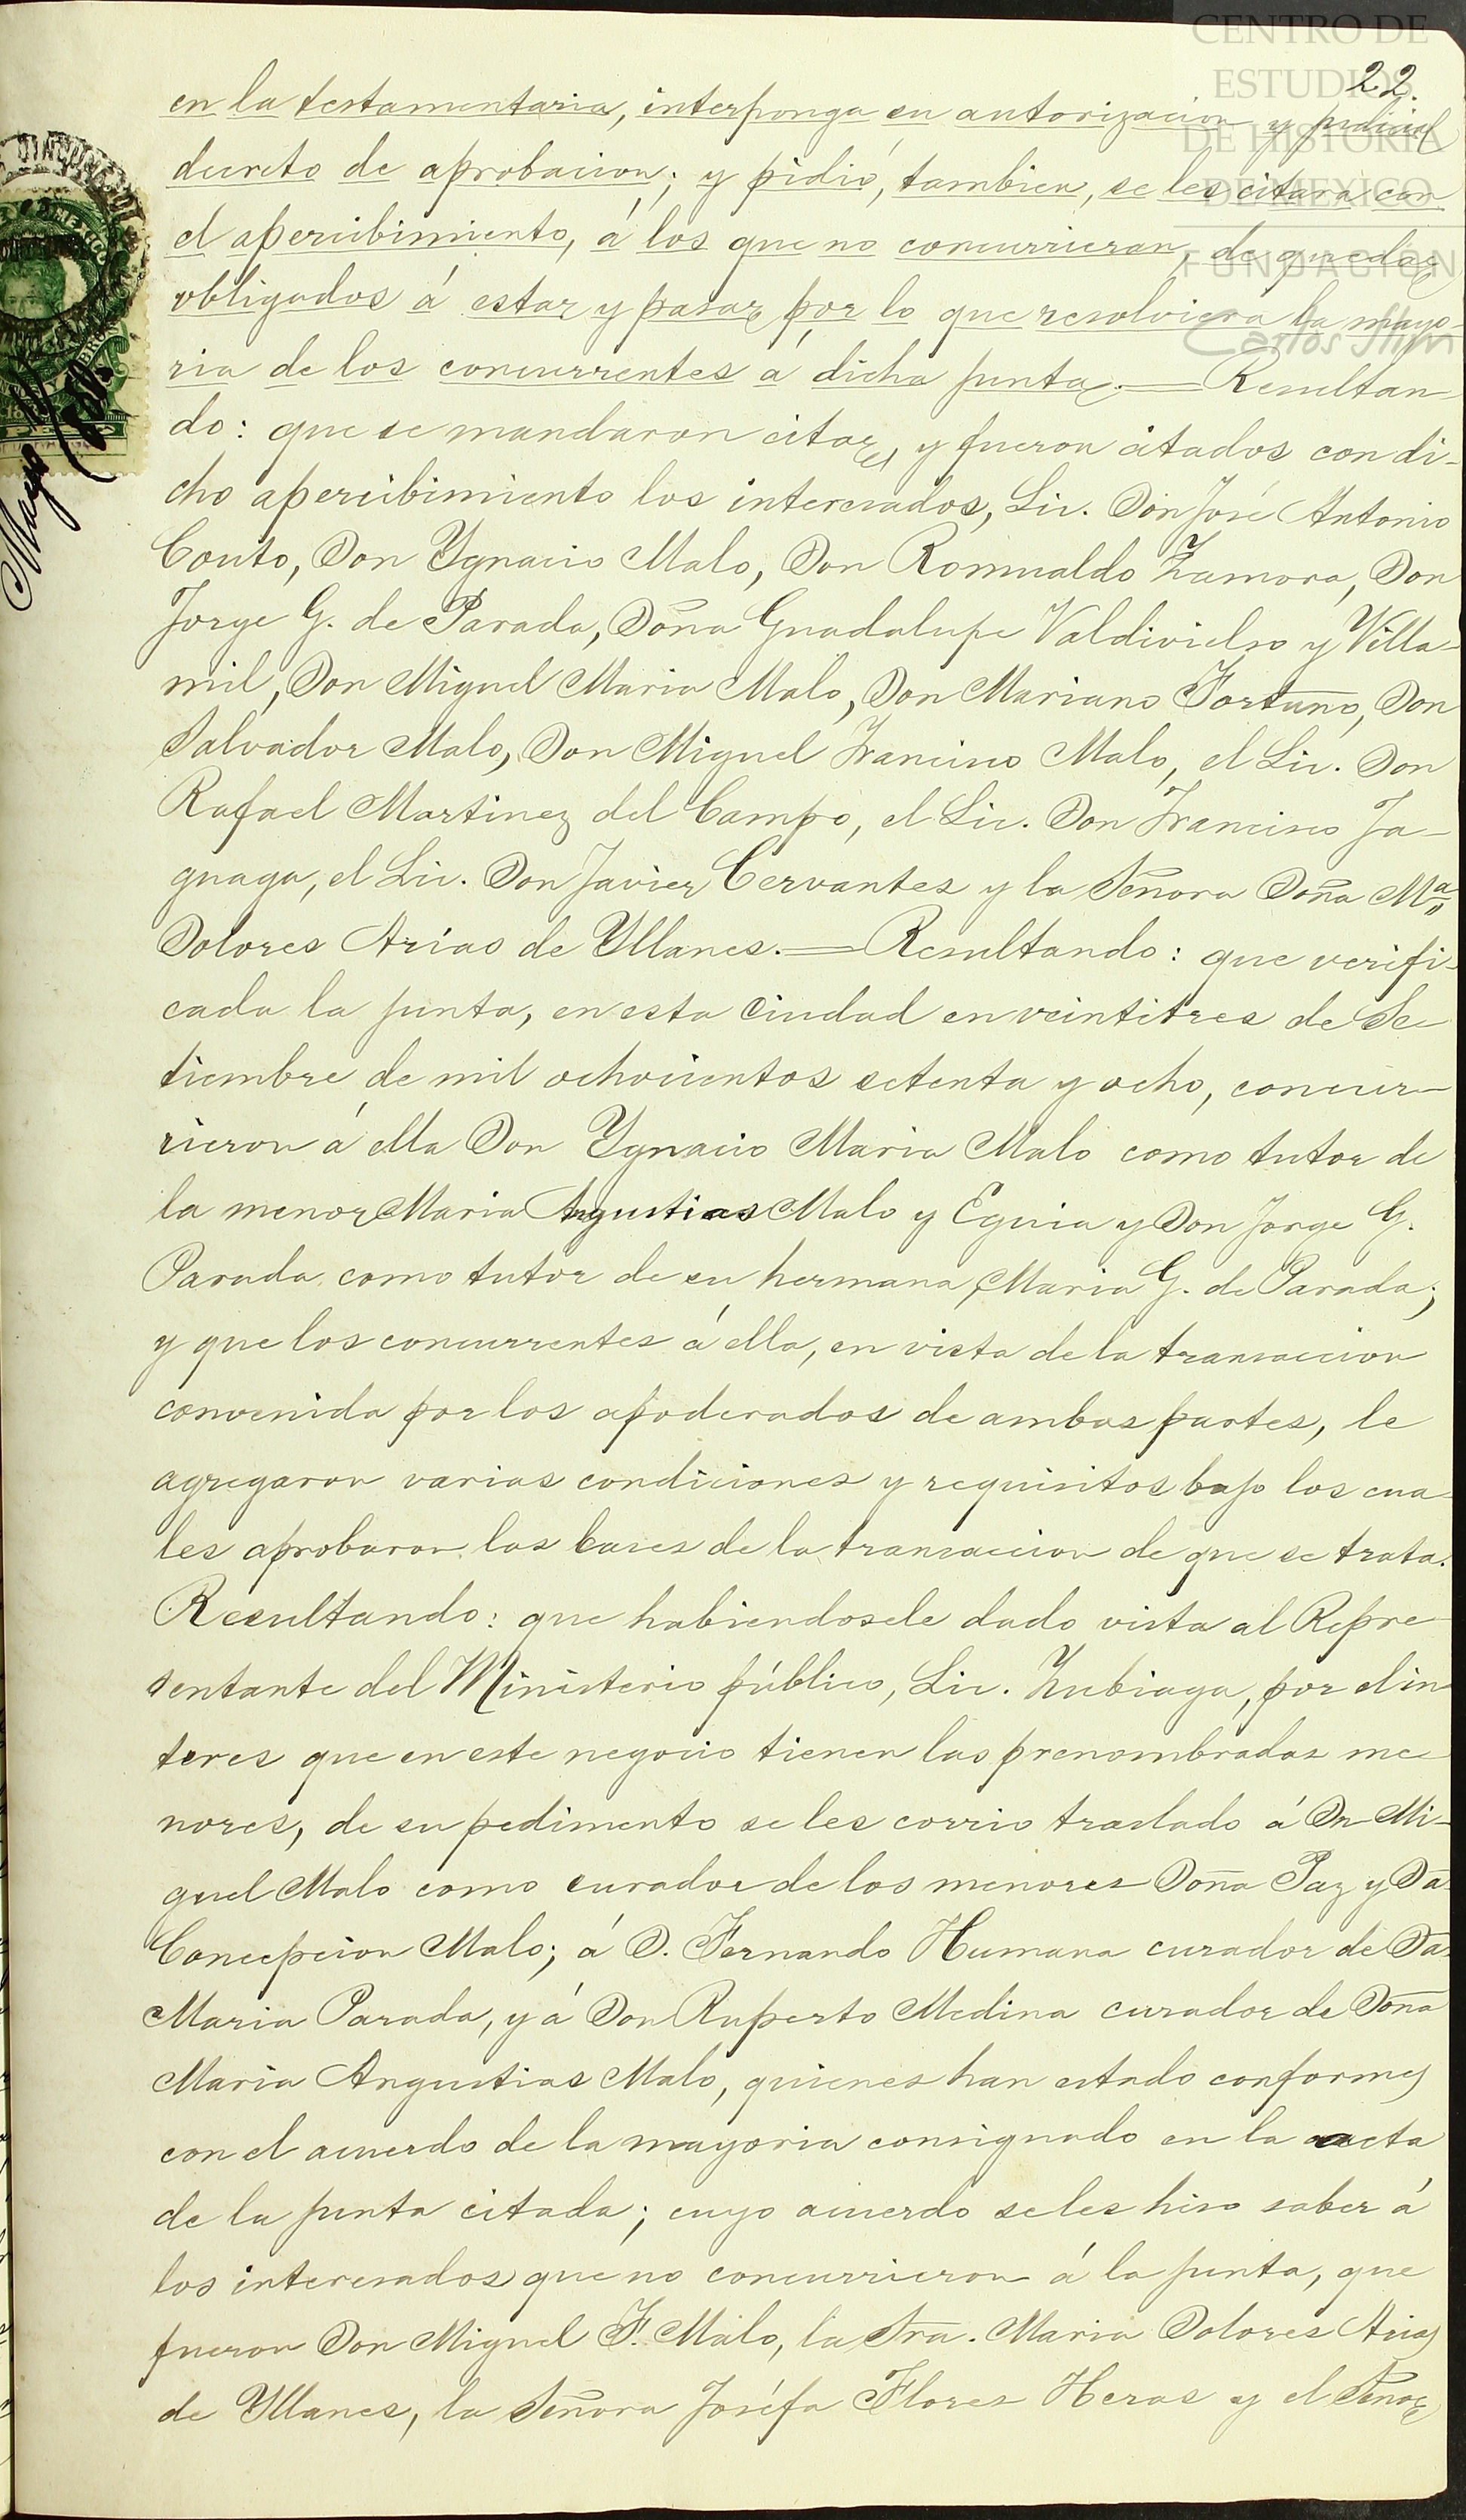 CENTRO DE
ESTUDIOS
DE HISTORIA
DE MEXICO
FUNDACIÓN
Carlos Slim
22.
en la testamentaria, interponga su autorizacion y judicial
decreto de aprobacion; y pidió, tambien, se les citara con
el apercibimiento, á los que no concurrieran, de quedar
obligados á estar y pasar por lo que resolviera la mayo-
ria de los concurrentes á dicha junta.=Resultan-
do: que se mandaron citar, y fueron citados con di-
cho apercibimiento los interesados, Lic. Don José Antonio
Couto, Don Ygnacio Malo, Don Romualdo Zamora, Don
Jorge G. de Parada, Doña Guadalupe Valdivielso y Villa-
mil, Don Miguel Maria Malo, Don Mariano Fortuño, Don
Salvador Malo, Don Miguel Francisco Malo, el Lic. Don
Rafael Martinez del Campo, el Lic. Don Francisco Ja-
guaga, el Lic. Don Javier Cervantes y la Señora Doña Mª
Dolores Arias de Yllanes.=Resultando: que verifi-
cada la junta, en esta Ciudad en veintitres de Se-
tiembre de mil ochocientos setenta y ocho, concur-
rieron á ella Don Ygnacio Maria Malo como tutor de
la menor Maria Angustias Malo y Eguia y Don Jorge G.
Parada como tutor de su hermana Maria G. de Parada;
y que los concurrentes á ella, en vista de la transaccion
convenida por los apoderados de ambas partes, le
agregaron varias condiciones y requisitos bajo los cua-
les aprobaron las bases de la transaccion de que se trata.
Resultando: que habiendosele dado vista al Repre-
sentante del Ministerio público, Lic. Zubiaga, por el in
teres que en este negocio tienen las prenombradas me-
nores, de su pedimento se les corrio traslado á Dn Mi-
guel Malo como curador de los menores Doña Paz y Da
Concepcion Malo; á D. Fernando Humana curador de Da
Maria Parada, y á Don Ruperto Medina curador de Doña
Maria Angustias Malo, quienes han estado conformes
con el acuerdo de la mayoria consignado en la acta
de la junta citada; cuyo acuerdo se les hiso saber á
los interesados que no concurrieron á la junta, que
fueron Don Miguel F. Malo, la Sra. Maria Dolores Arias
de Yllanes, la Señora Joséfa Flores Heras y el Señor
Mayo